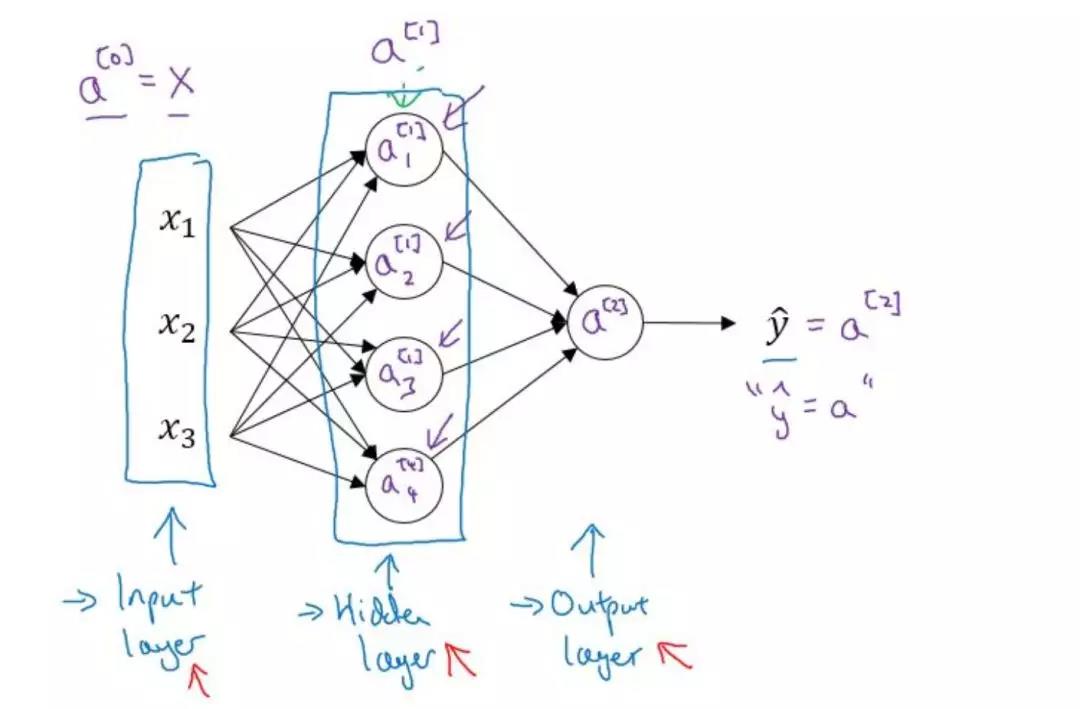 a^[1]
a^[0] = X
x₁
x₂
x₃
a₁^[1]
a₂^[1]
a₃^[1]
a₄^[4]
a^[2]
ŷ = a^[2]
"ŷ = a"
→ Input
layer
→ Hidden
layer
→ Output
layer